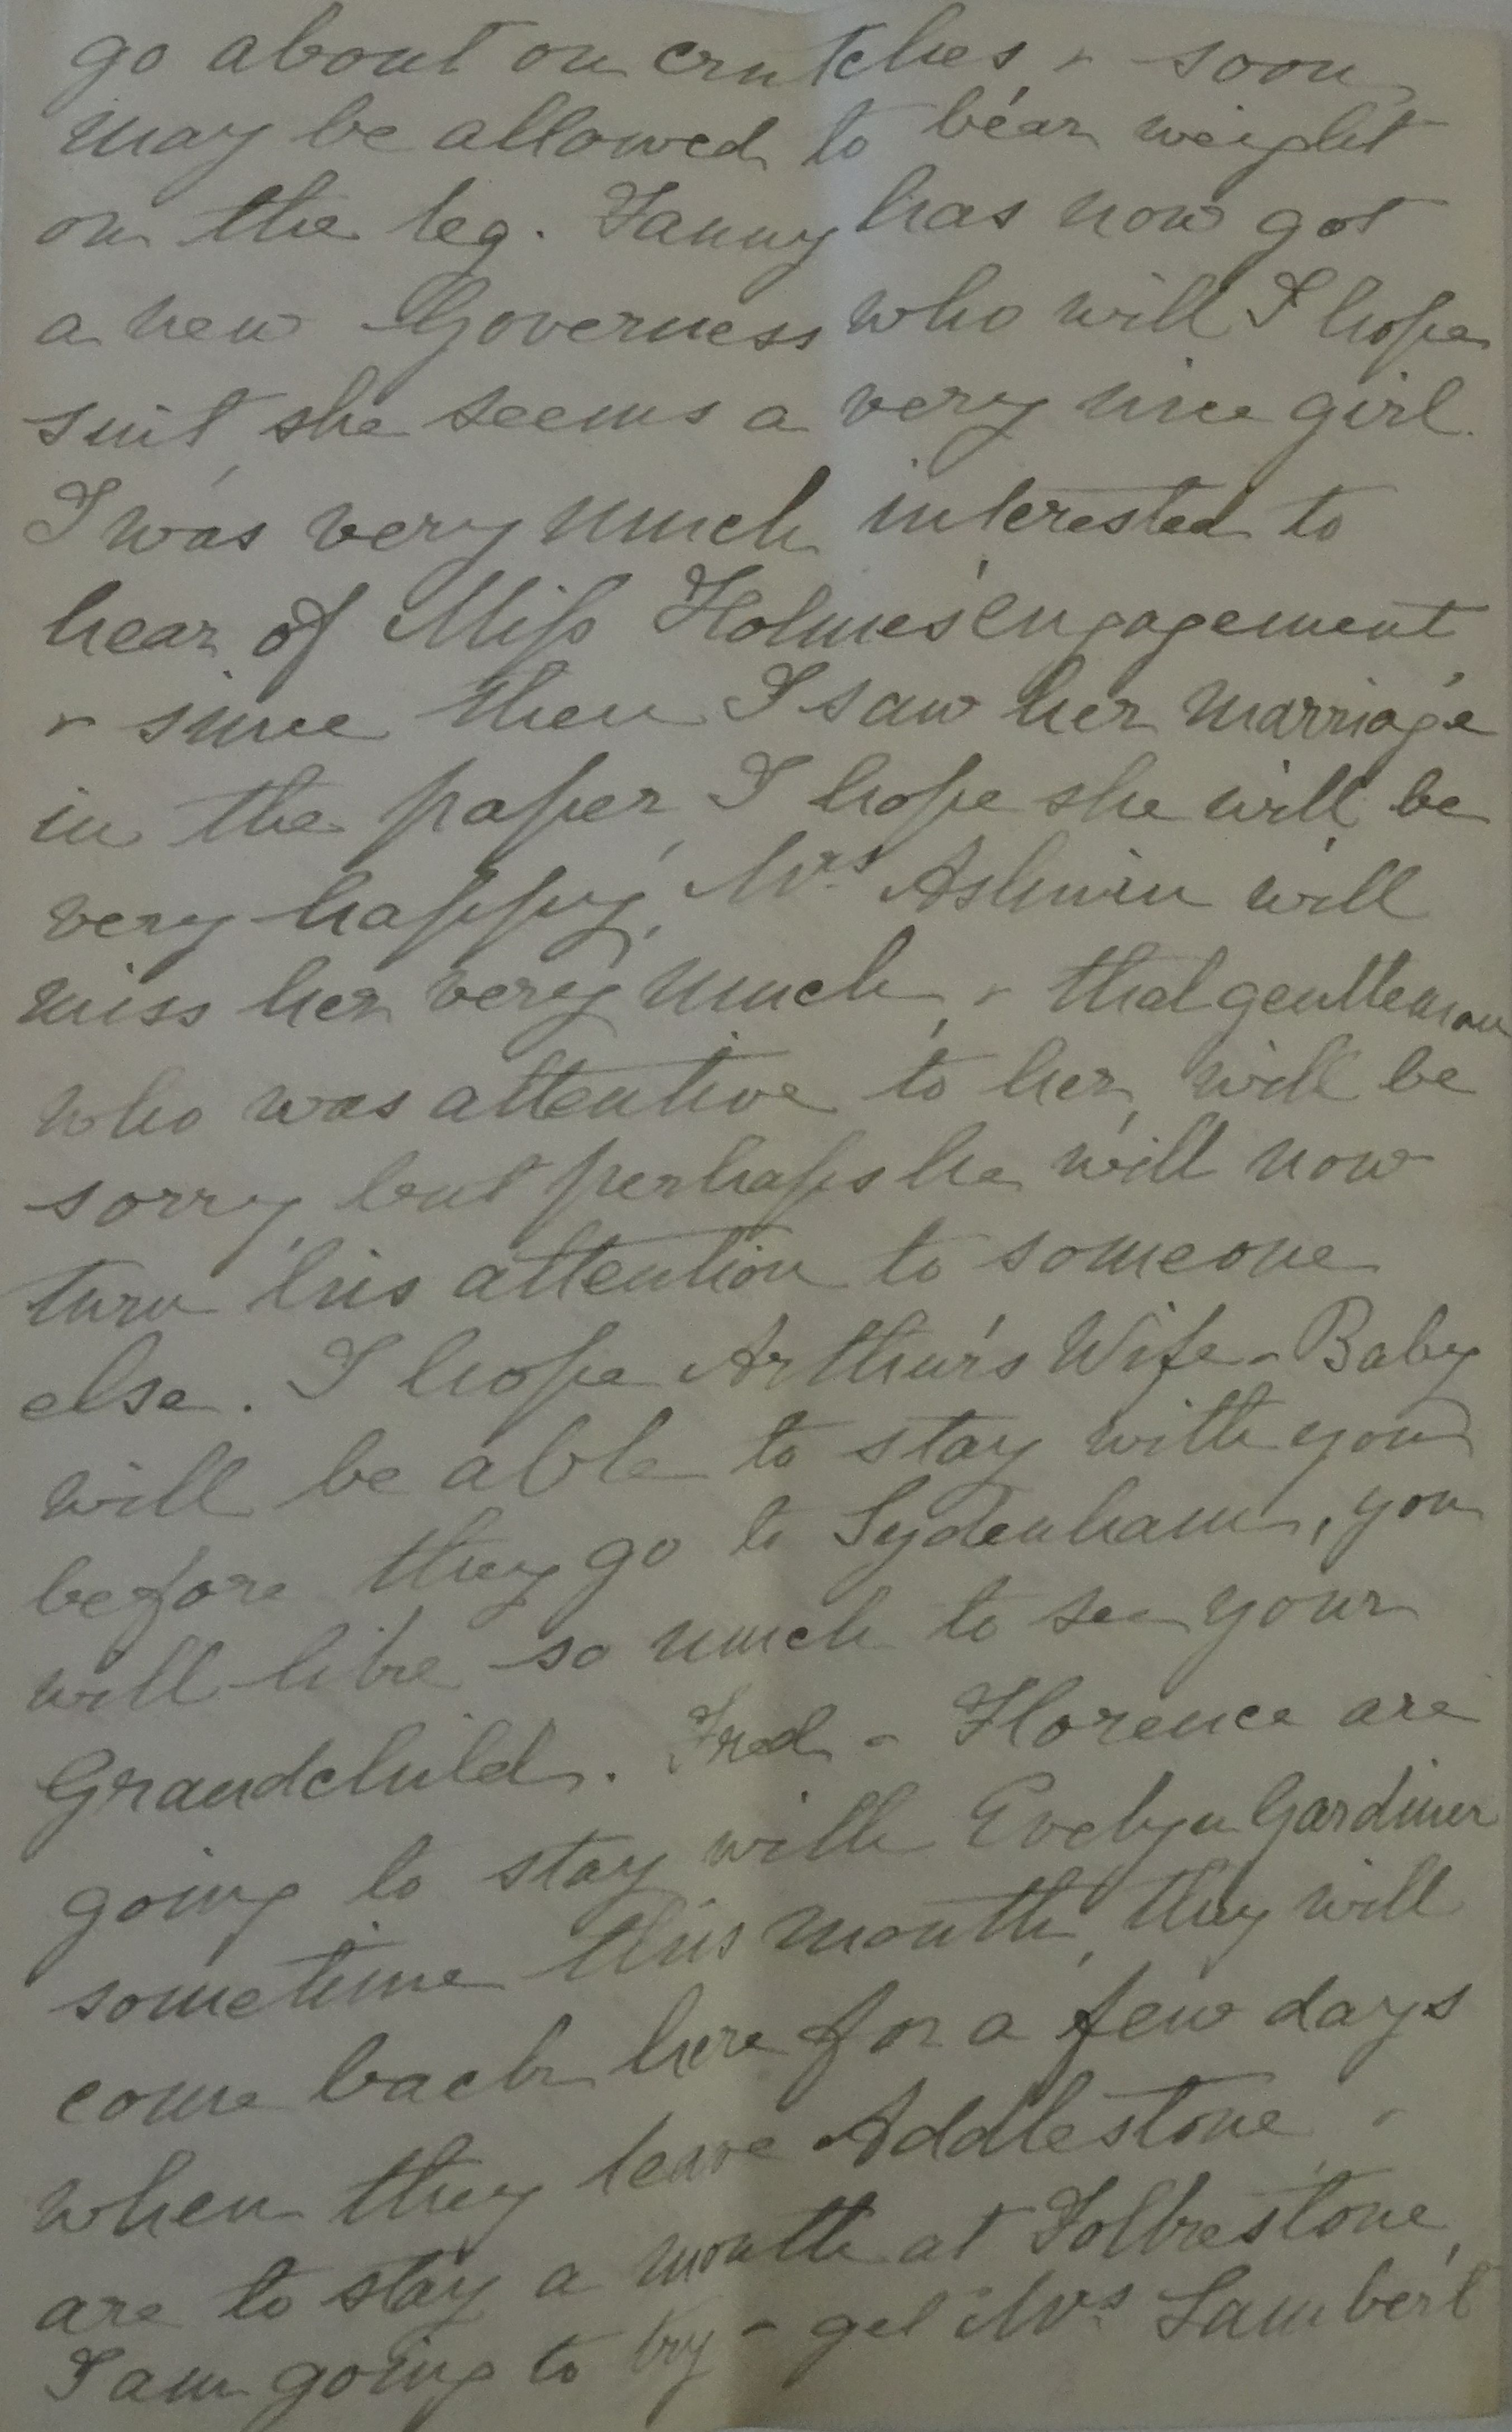 go about on crutches & soon
may be allowed to bear weight
on the leg. Fanny has now got
a new Governess who will I hope
suit she seems a very nice girl.
I was very much interested to
hear of Miss Holmes' engagement
& since then I saw her marriage
in the paper, I hope she will be
very happy, Mrs Ashwin will
miss her very much, & that gentleman
who was attentive to her, will be
sorry, but perhaps he will now
turn his attention to someone
else. I hope Arthur's Wife & Baby
will be able to stay with you
before they go to Sydenham, you
will like so much to see your
Grandchild. Fred & Florence are
going to stay with Evelyn Gardiner
sometime this month, they will
come back here for a few days
when they leave Addlestone &
are to stay a month at Folkestone,
I am going to try & get Mrs Lambert